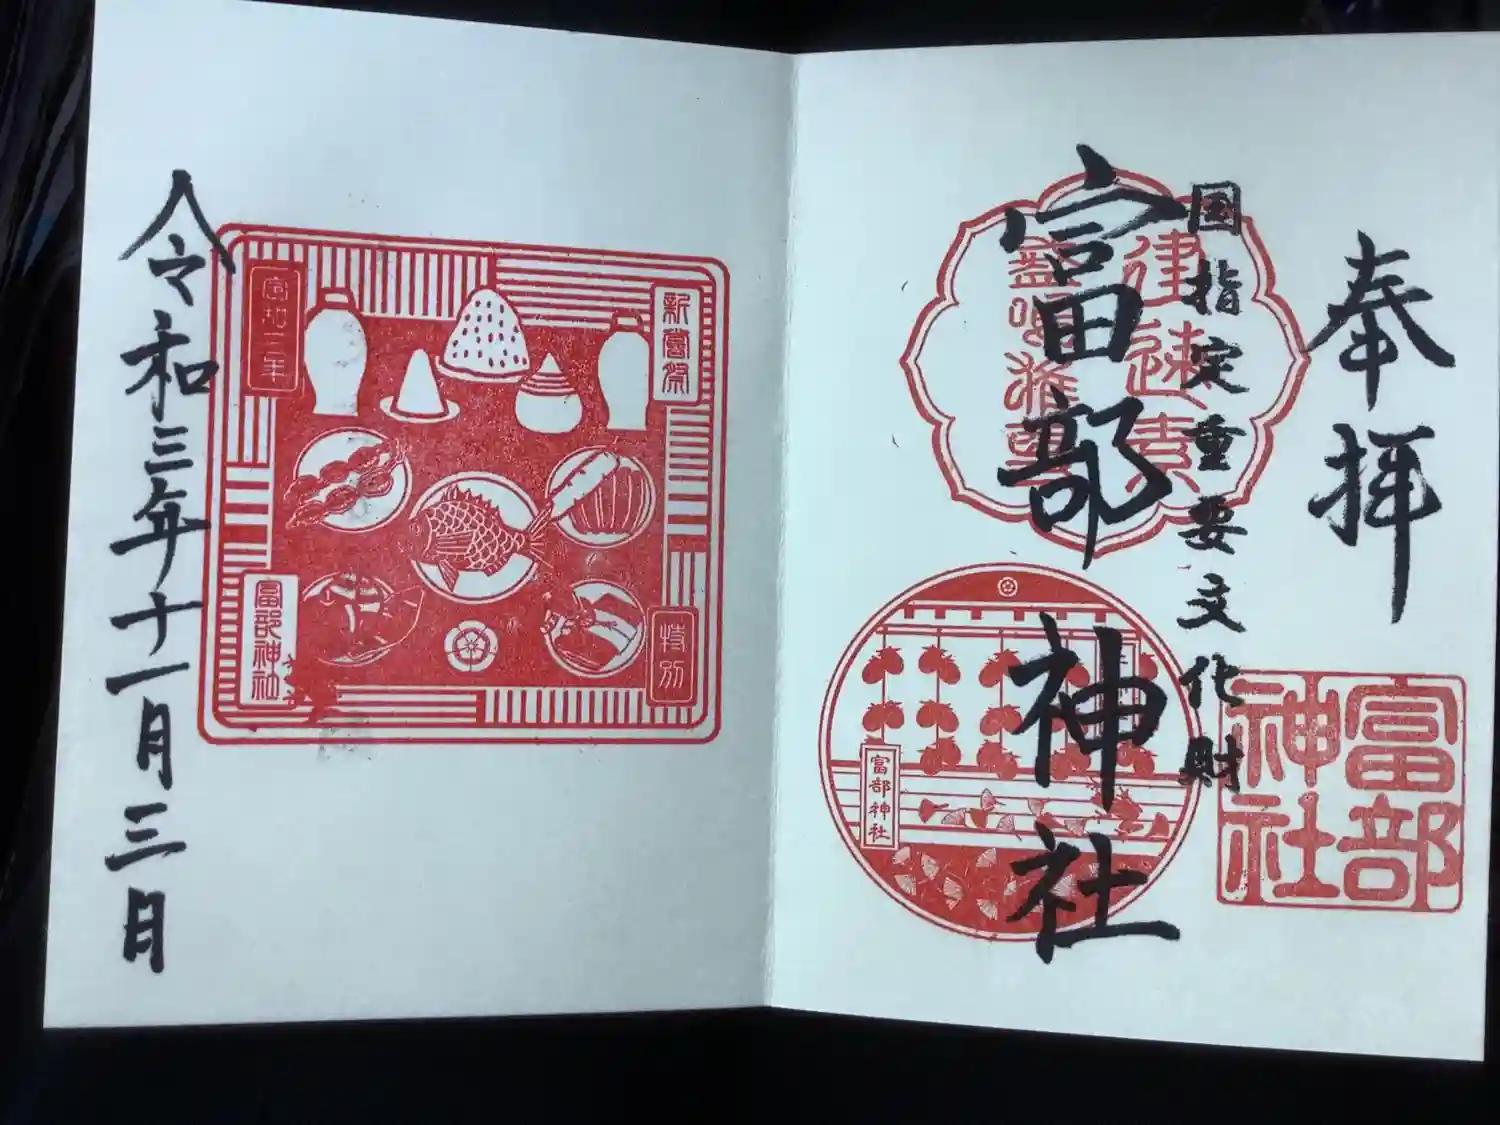 奉拝
国指定重要文化財
富部神社
建速素
盞嗚雅
富部
神社
富部神社
新嘗祭
特別
富部神社
令和三年十一月三日